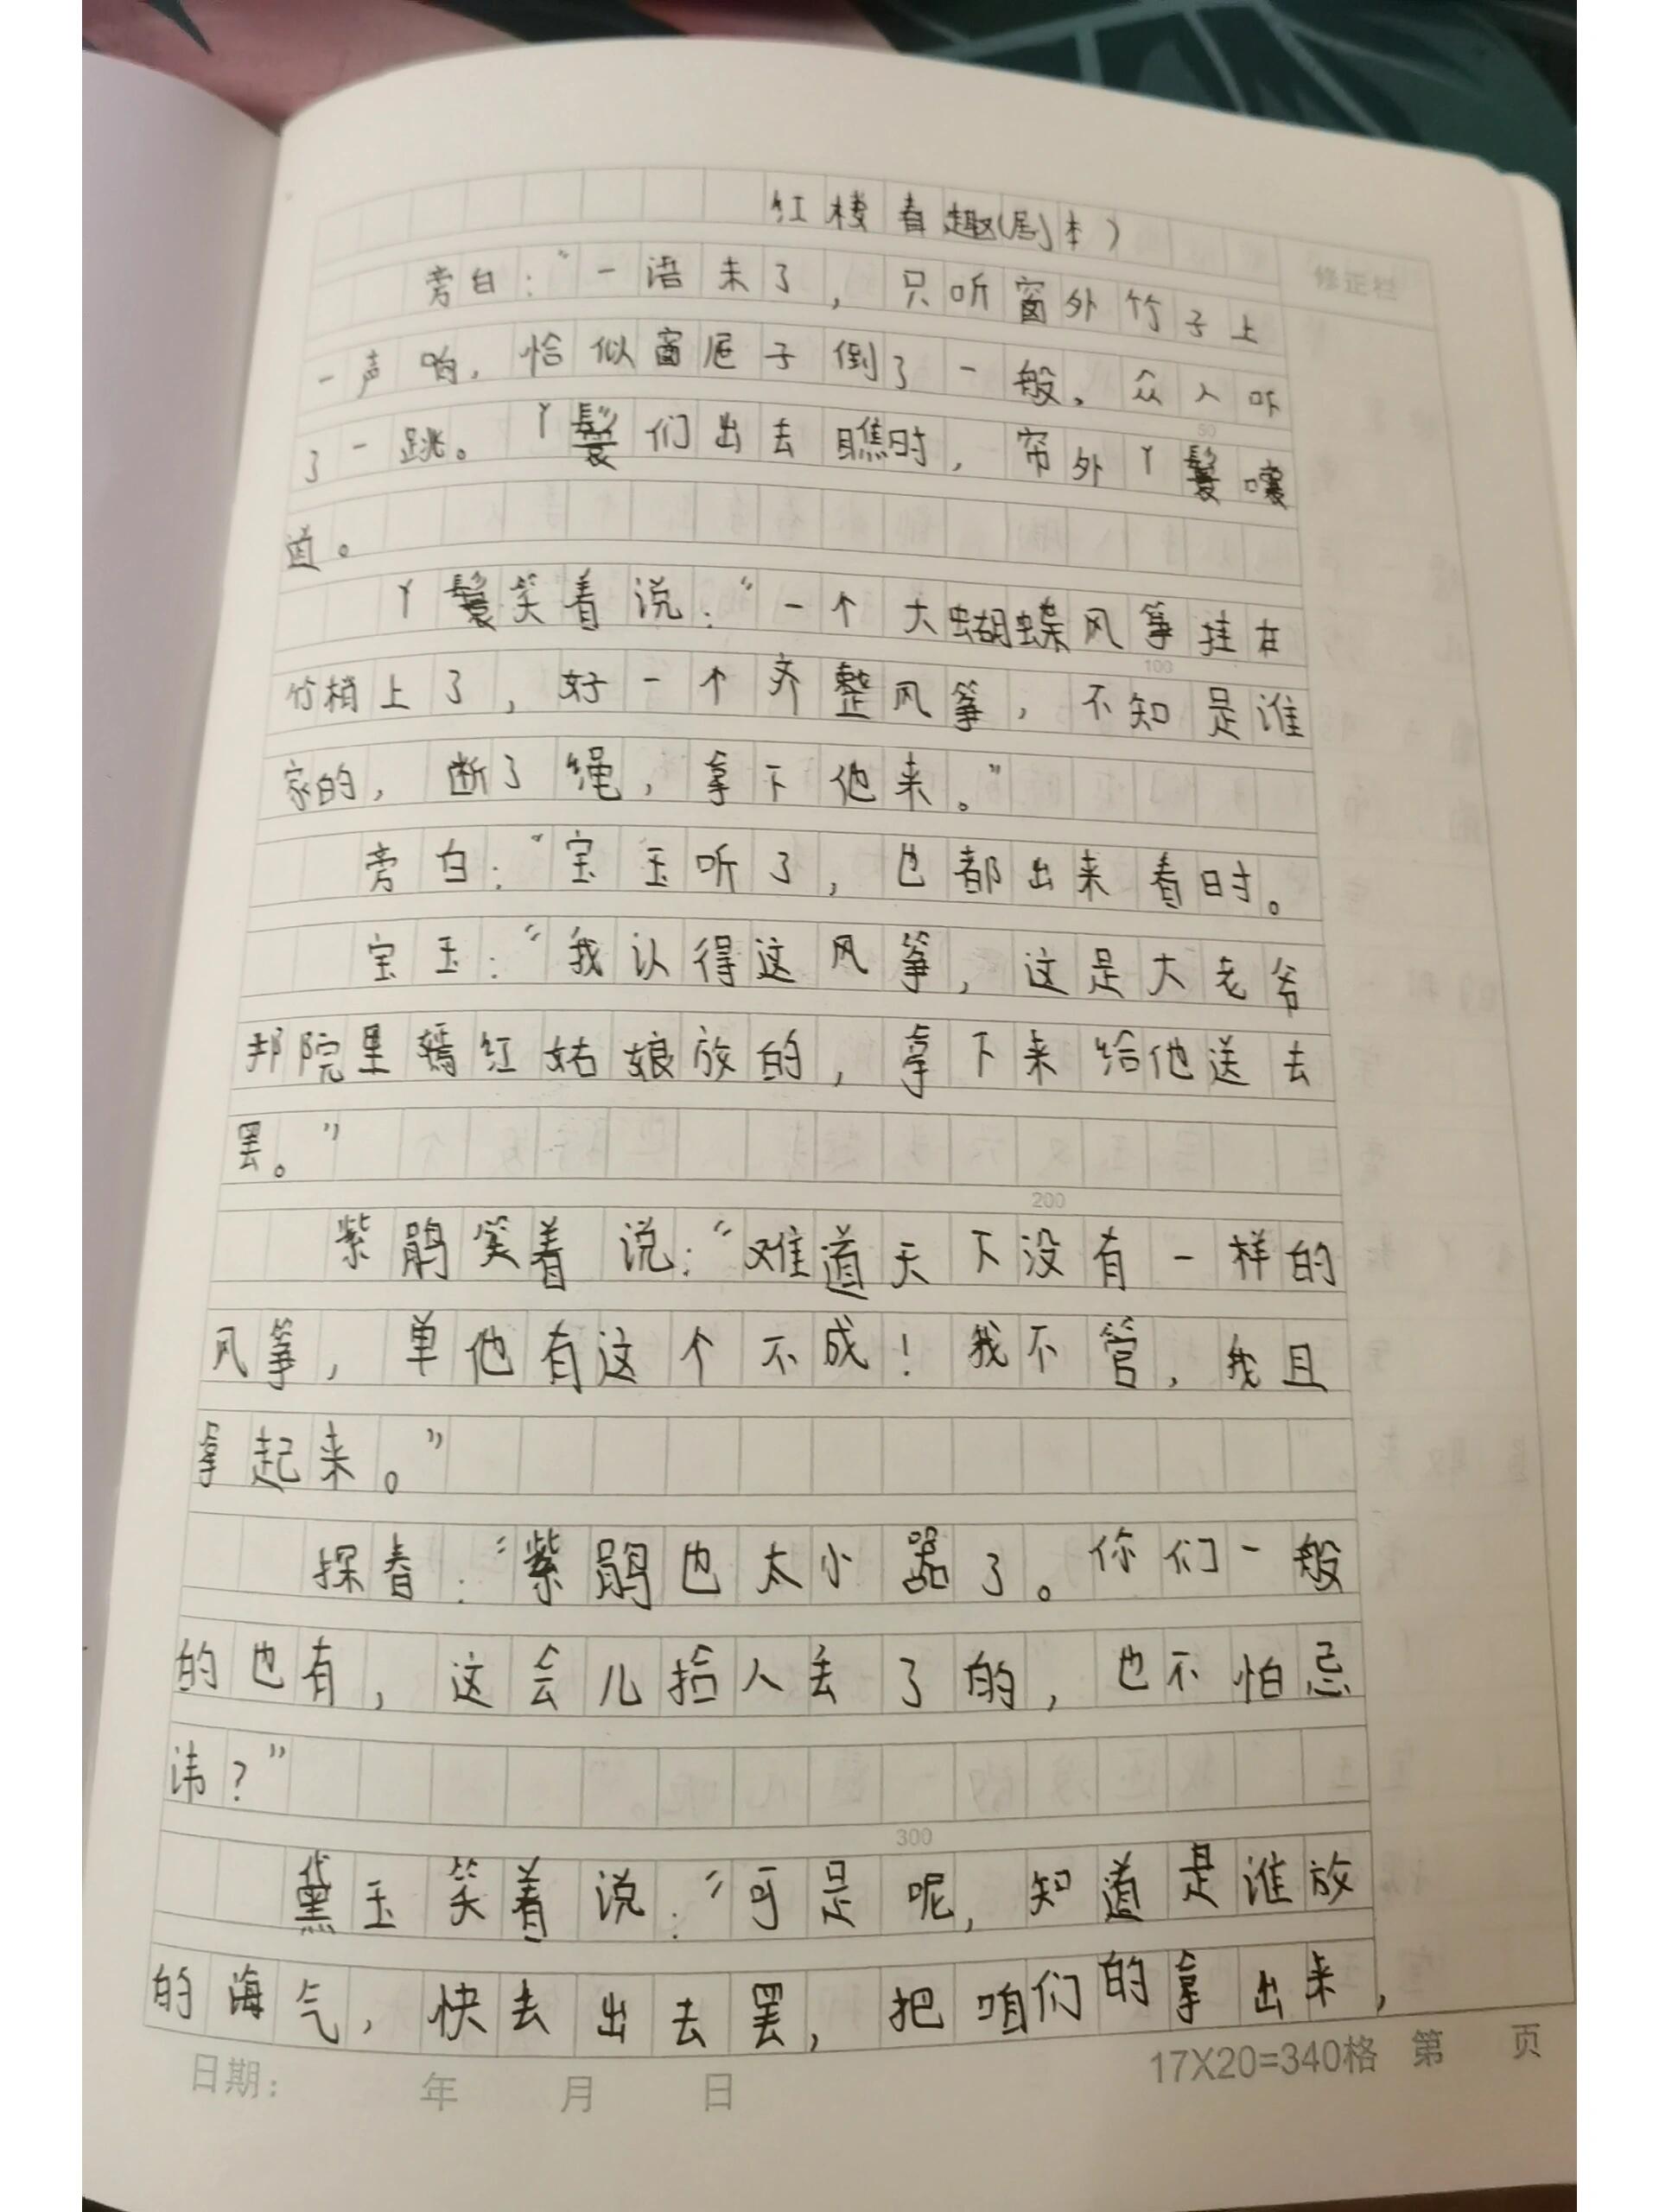 红楼春趣(剧本)
修正栏
旁白:“一语未了,只听窗外竹子上
一声响,恰似窗屉子倒了一般,众人吓
了一跳。丫鬟们出去瞧时,帘外丫鬟嚷
50
道。
丫鬟笑着说:“一个大蝴蝶风筝挂在
竹梢上了,好一个齐整风筝,不知是谁
100
家的,断了绳,拿下他来。”
旁白:“宝玉听了,也都出来看时。
宝玉:“我认得这风筝,这是大老爷
那院里嫣红姑娘放的,拿下来给他送去
罢。”
200
紫鹃笑着说:“难道天下没有一样的
风筝,单他有这个不成!我不管,我且
拿起来。”
探春:“紫鹃也太小器了。你们一般
的也有,这会儿拾人丢了的,也不怕忌
讳?”
300
黛玉笑着说:“可是呢,知道是谁放
的晦气,快去出去罢,把咱们的拿出来,
日期: 年 月 日 17X20=340格 第 页